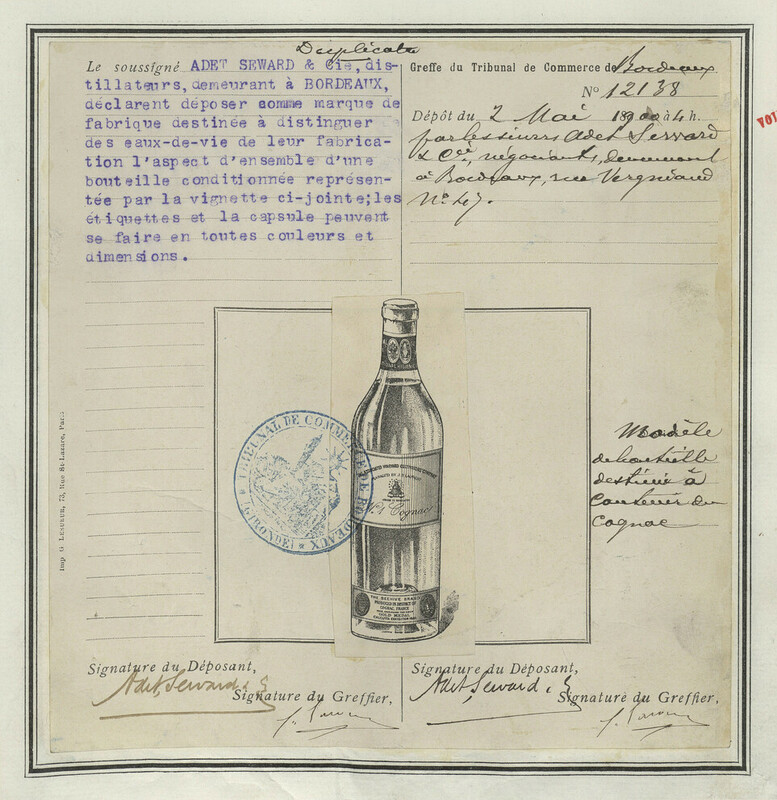 Duplicata
Le soussigné ADET SEWARD & Cie, dis-
tillateurs, demeurant à BORDEAUX,
déclarent déposer comme marque de
fabrique destinée à distinguer
des eaux-de-vie de leur fabrica-
tion l'aspect d'ensemble d'une
bouteille conditionnée représen-
tée par la vignette ci-jointe;les
étiquettes et la capsule peuvent
se faire en toutes couleurs et
dimensions.
Greffe du Tribunal de Commerce de Bordeaux
No 12138
Dépôt du 2 Mai 1900 à 4 h.
par les sieurs Adet Seward
& Cie, négociants, demeurant
à Bordeaux, rue Vergniaud
No 47.
TRIBUNAL DE COMMERCE DE BORDEAUX
(GIRONDE)
No 1 Cognac
THE BEEHIVE BRAND
COGNAC, FRANCE
GOLD MEDAL
Modèle
de bouteille
destinée à
contenir du
cognac
Imp G. LESUEUR, 73, Rue St-Lazare, Paris
Signature du Déposant,
Adet, Seward &
Signature du Greffier,
Signature du Déposant,
Adet, Seward &
Signature du Greffier,